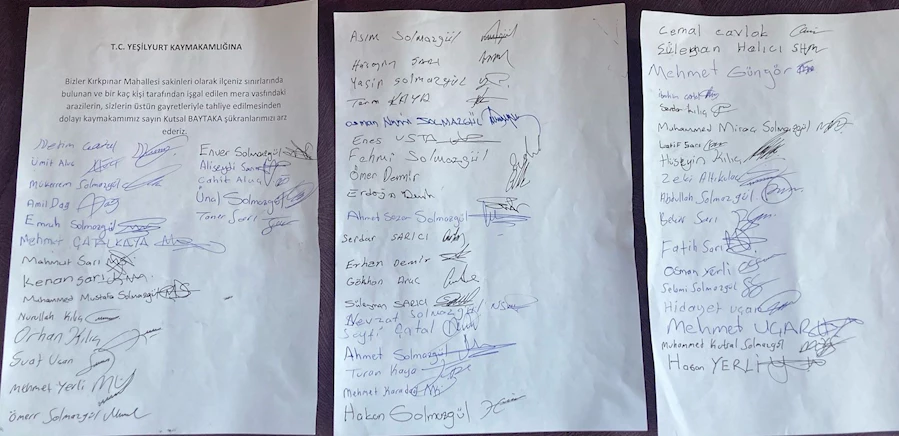 T.C. YEŞİLYURT KAYMAKAMLIĞINA
Bizler Kırkpınar Mahallesi sakinleri olarak ilçeniz sınırlarında
bulunan ve bir kaç kişi tarafından işgal edilen mera vasfındaki
arazilerin, sizlerin üstün gayretleriyle tahliye edilmesinden
dolayı kaymakamımız sayın Kutsal BAYTAKA şükranlarımızı arz
ederiz.
Ümit Aluç
Mükerrem Solmazgül
Anıl Dağ
Emrah Solmazgül
Mehmet ÇATALKAYA
Mahmut Sarı
Kenan Sarı
Muhammed Mustafa Solmazgül
Nurullah Kılıç
Orhan Kılıç
Suat Ucan
Mehmet Yerli
Ömer Solmazgül
Enver Solmazgül
Aliseydi Sarı
Cahit Aluç
Ünal Solmazgül
Taner Sarı
Asım Solmazgül
Yasin Solmazgül
KAYA
Osman Nuri SOLMAZGÜL
Enes USTA
Fehmi Solmazgül
Ömer Demir
Erdoğan
Ahmet Sezer Solmazgül
Serdar SARICI
Erhan Demir
Gökhan
Süleyman SARICI
Nevzat Solmazgül
Seyfi Çatal
Ahmet Solmazgül
Turan Kaya
Mehmet Karadağ
Hakan Solmazgül
Cemal cavlak
Süleyman Halıcı
Mehmet Güngör
Serdar Kılıç
Muhammed Miraç Solmazgül
Latif Sarı
Hüseyin Kılıç
Zeki Altıkulaç
Abdullah Solmazgül
Bekir Sarı
Fatih Sarı
Osman Yerli
Selami Solmazgül
Hidayet uçar
Mehmet UÇAR
Muhammet Kutsal Solmazgül
Hasan YERLİ